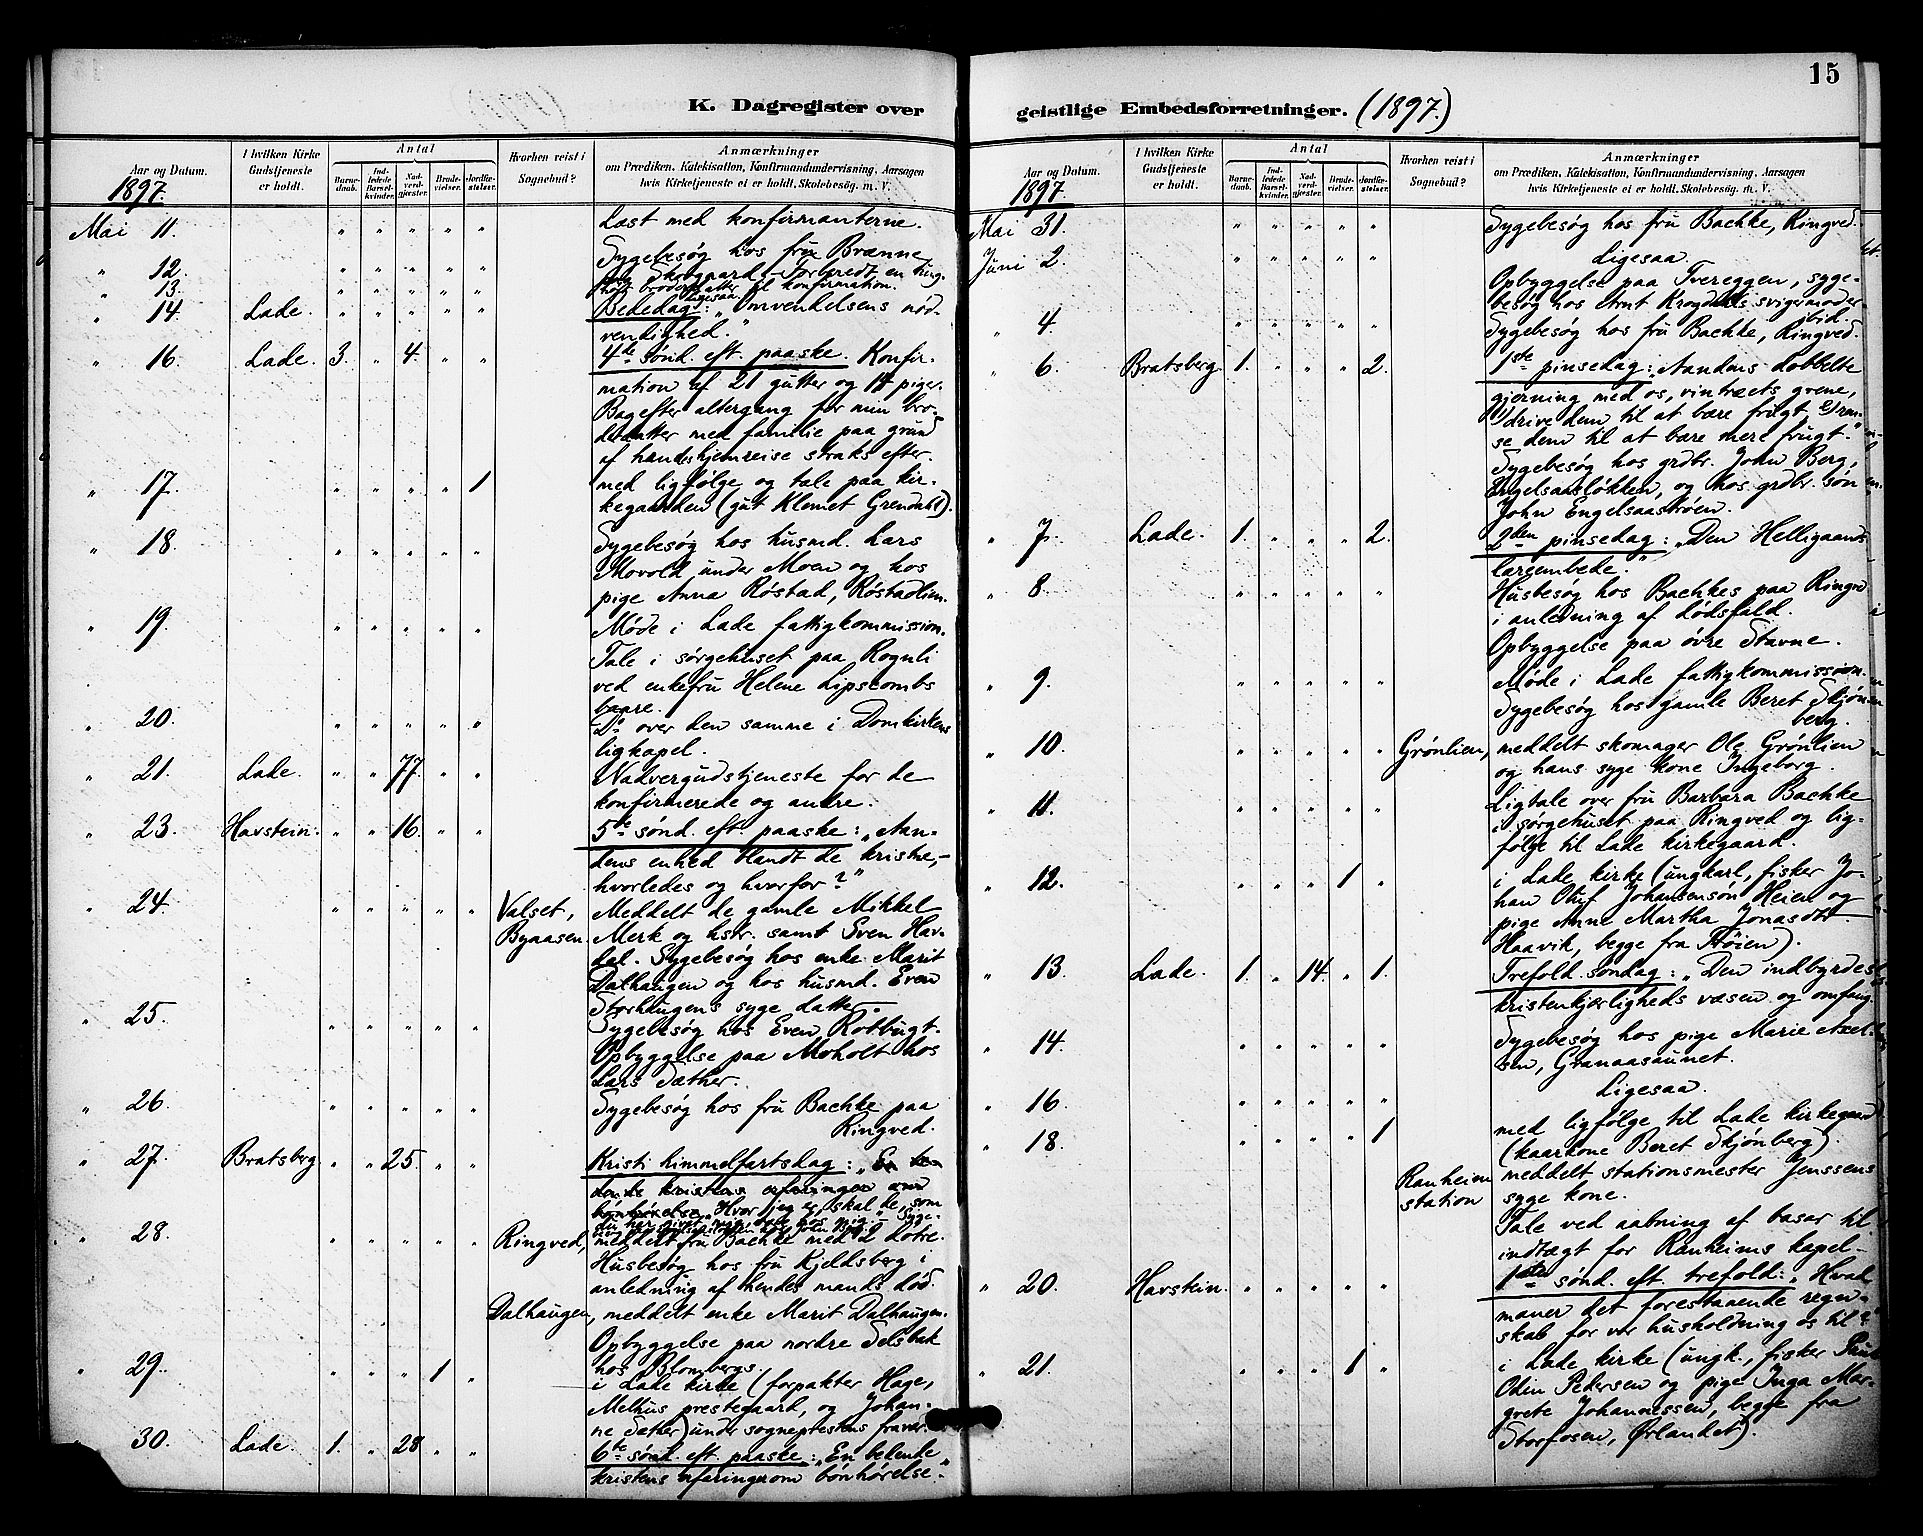 15
K. Dagregister over
Aar og Datum.
I hvilken Kirke Gudstjeneste er holdt.
Antal
Barnedaab.
Indledede Barselkvinder.
Nadverdgjester.
Brudevielser.
Jordfæstelser.
Hvorhen reist i Sognebud?
Anmærkninger
om Prædiken, Katekisation, Konfirmandundervisning, Aarsagen
hvis Kirketjeneste ei er holdt. Skolebesøg. m. V.
1897.
Mai 11. " " " " " Læst med konfirmanterne.
Sygebesøg hos fru Brænne,
" 12. " " " " "
" 13. " " " " " brodersdatter til konfirmation.
ligesaa.
" 14. Lade. " " " " " Bededag: „Omvendelsens nød-
vendighed."
" 16. Lade. 3. " 4. " " 4de sønd. eft. paaske. Konfir-
mation af 21 gutter og 17 piger.
Bagefter altergang for min bro-
derdatter med familie paa grund
af hendes hjemreise straks efter.
" 17. " " " " 1 med ligfølge og tale paa kir-
kegaarden (gut Klemet Grendahl).
" 18. " " " " " Sygebesøg hos husmd. Lars
Movold under Moen og hos
pige Anna Røstad, Røstadlien.
" 19. " " " " " Møde i Lade fattigkommission.
Tale i sørgehuset paa Rognli
ved enkefru Helene Lipscombs
baare.
" 20. " " " " " Do over den samme i Domkirkens
ligkapel.
" 21. Lade. " " 77. " " Nadvergudstjeneste for de
konfirmerede og andre.
" 23. Havstein. " " 16. " " 5te sønd. eft. paaske: „Aan-
dens enhed blandt de kristne,-
hvorledes og hvorfor?"
" 24. " " " " " Valset, Meddelt de gamle Mikkel
Byaasen. Merk og hstr. samt Sven Hav-
dal. Sygebesøg hos enke Marit
Dalhaugen og hos husmd. Even
Storhaugens syge datter.
" 25. " " " " " Sygebesøg hos Even Rotbugt.
Opbyggelse paa Moholt hos
Lars Sæther.
" 26. " " " " " Sygebesøg hos fru Bachke paa
Ringved.
" 27. Bratsberg " " 25. " " Kristi himmelfartsdag: „En
kristens erfaringer
bønhørelse „Hvor jeg er, skal de, som
du har givet mig,
" 28. " " " " " Ringved, meddelt fru Bachke med 2 døtre.
Husbesøg hos fru Kjeldsberg i
anledning af hendes mands død.
Dalhaugen, meddelt enke Marit Dalhaugen.
Opbyggelse paa nordre Selsbak
hos Blombergs.
" 29. " " " 1 " i Lade kirke (forpakter Hage,
Melhus prestegaard, og Johan-
ne Sæther) under sogneprestens fravær.
30. Lade. 1. " 28 " " 6te sønd. eft. paaske: „En bedende
kristens erfaring om bønhørelse."
geistlige Embedsforretninger. (1897.)
Aar og Datum.
I hvilken Kirke Gudstjeneste er holdt.
Antal
Barnedaab.
Indledede Barselkvinder.
Nadverdgjester.
Brudevielser.
Jordfæstelser.
Hvorhen reist i Sognebud?
Anmærkninger
om Prædiken, Katekisation, Konfirmandundervisning, Aarsagen
hvis Kirketjeneste ei er holdt. Skolebesøg. m. V.
1897.
Mai 31. " " " " " Sygebesøg hos fru Bachke, Ringved.
Juni 2. " " " " " Ligesaa.
Opbyggelse paa Tvereggen, syge-
besøg hos Arnt Krogdahls svigermoder
sbid.
" 4. " " " " " Sygebesøg hos fru Bachke, Ringved.
" 6. Bratsberg 1. " " " 2. 1ste pinsedag: „Aandens dobbelte
gjerning med os, vintræets grene,
1) drive dem til at bære frugt 2) ren-
se dem til at bære mere frugt."
Sygebesøg hos grdbr. John Berg,
Engelsaasløkken, og hos grdbr. søn
John Engelsaastrøen.
" 7. Lade. 1. " " " 2. 2den pinsedag: „Den Helligaands
læreembede."
" 8. " " " " " Husbesøg hos Bachkes paa Ringve
i anledning af dødsfald.
Opbyggelse paa øvre Stavne.
" 9. " " " " " Møde i Lade fattigkommission.
Sygebesøg hos gamle Beret Skjøn-
berg.
" 10. " " " " " Grønlien, meddelt skomager Ole Grønlien
og hans syge kone Ingeborg.
" 11. " " " " " Ligtale over fru Barbara Bachke
i sørgehuset paa Ringved og lig-
følge til Lade kirkegaard.
" 12. " " " 1 " i Lade kirke (ungkarl, fisker Jo-
han Oluf Johansensøn Heien og
pige Anne Martha Jonasdtr
Haavik, begge fra Frøien).
" 13. Lade. 1. " 14. " 1. Trefold. søndag: „Den indbyrdes
kristenkjærligheds væsen og omfang.
" 14. " " " " " Sygebesøg hos pige Marie Axel-
sen, Granaasaunet.
" 16. " " " " " Ligesaa.
" 18. " " " " 1 med ligfølge til Lade kirkegaard
(kaarkone Beret Skjønberg).
Ranheim meddelt stationsmester Jenssens
station syge kone.
Tale ved aabning af basar til
indtægt for Ranheims kapel-
" 20. Havstein. " " " " " 1ste sønd. eft. trefold.: „Hvad
maner det forestaaende regn-
skab for vor husholdning os til?"
" 21. " " " 1 " i Lade kirke (ungk., fisker
Odin Pedersen og pige Inga Mar-
grete Johannessen, begge fra
Storfosen, Ørlandet).